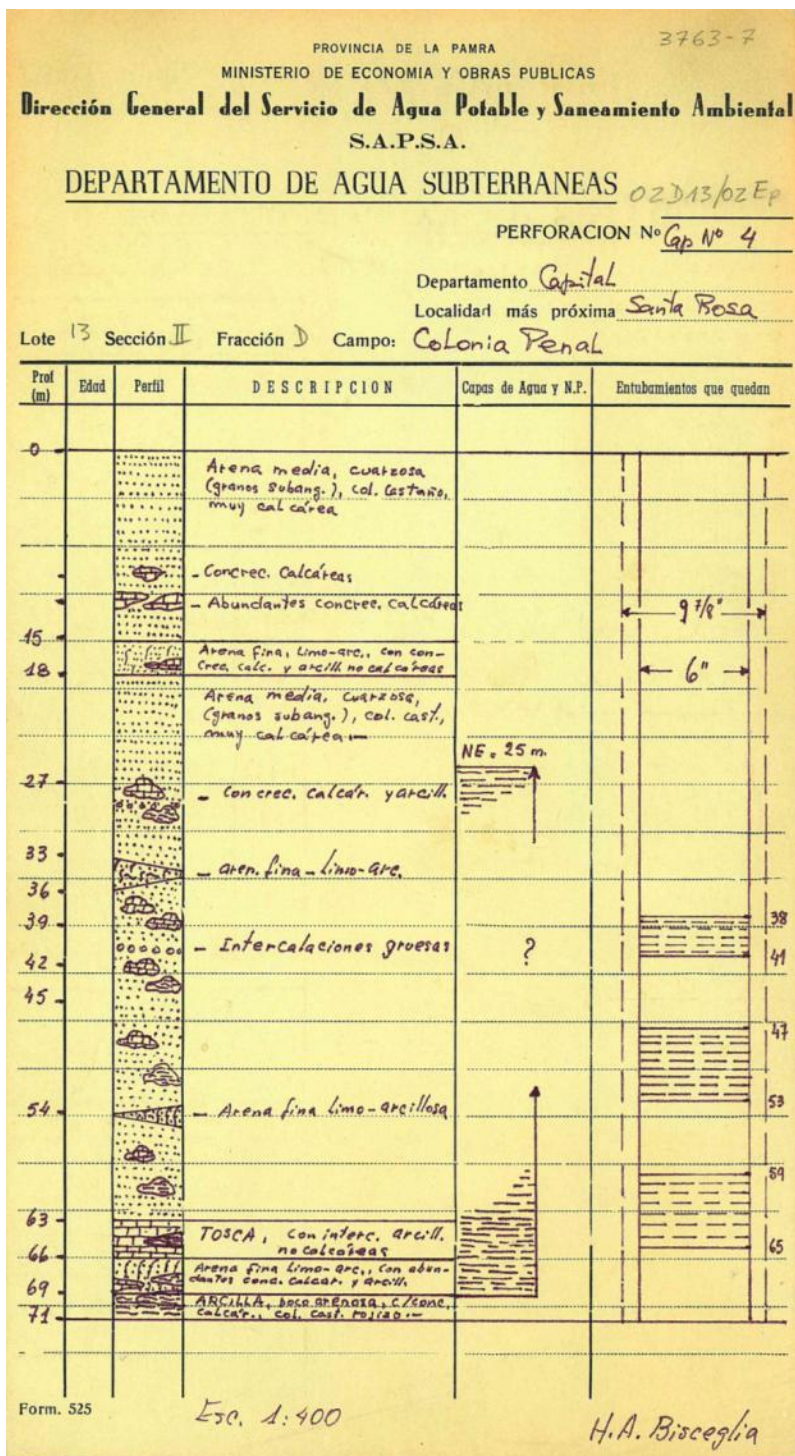 3763-7
PROVINCIA DE LA PAMRA
MINISTERIO DE ECONOMIA Y OBRAS PUBLICAS
Dirección General del Servicio de Agua Potable y Saneamiento Ambiental
S.A.P.S.A.
DEPARTAMENTO DE AGUA SUBTERRANEAS
02D13/02Ep
PERFORACION Nº Cap Nº 4
Departamento Capital
Localidad más próxima Santa Rosa
Lote 13 Sección II Fracción D Campo: Colonia Penal
Prof (m) Edad Perfil DESCRIPCION Capas de Agua y N.P. Entubamientos que quedan
0
Arena media, cuarzosa
(granos subang.), col. Castaño,
muy calcárea
- Concrec. Calcáreas
- Abundantes concrec. calcáreas
9 7/8"
15
Arena fina, limo-arc., con con-
crec. calc. y arcill. no calcáreas
18
6"
Arena media, cuarzosa,
(granos subang.), col. cast.,
muy calcárea.-
NE = 25 m.
27
- Concrec. calcár. y arcill.
33
- aren. fina - limo-arc.
36
38
39
- Intercalaciones gruesas
?
41
42
45
47
53
54
- Arena fina limo-arcillosa
59
63
TOSCA, con interc. arcill.
no calcáreas
65
66
Arena fina limo-arc., con abun-
dantes conc. calcár. y arcill.
69
ARCILLA, poco arenosa, c/conc.
calcár., col. cast. rojizo.-
71
Form. 525
Esc. 1:400
H.A. Bisceglia